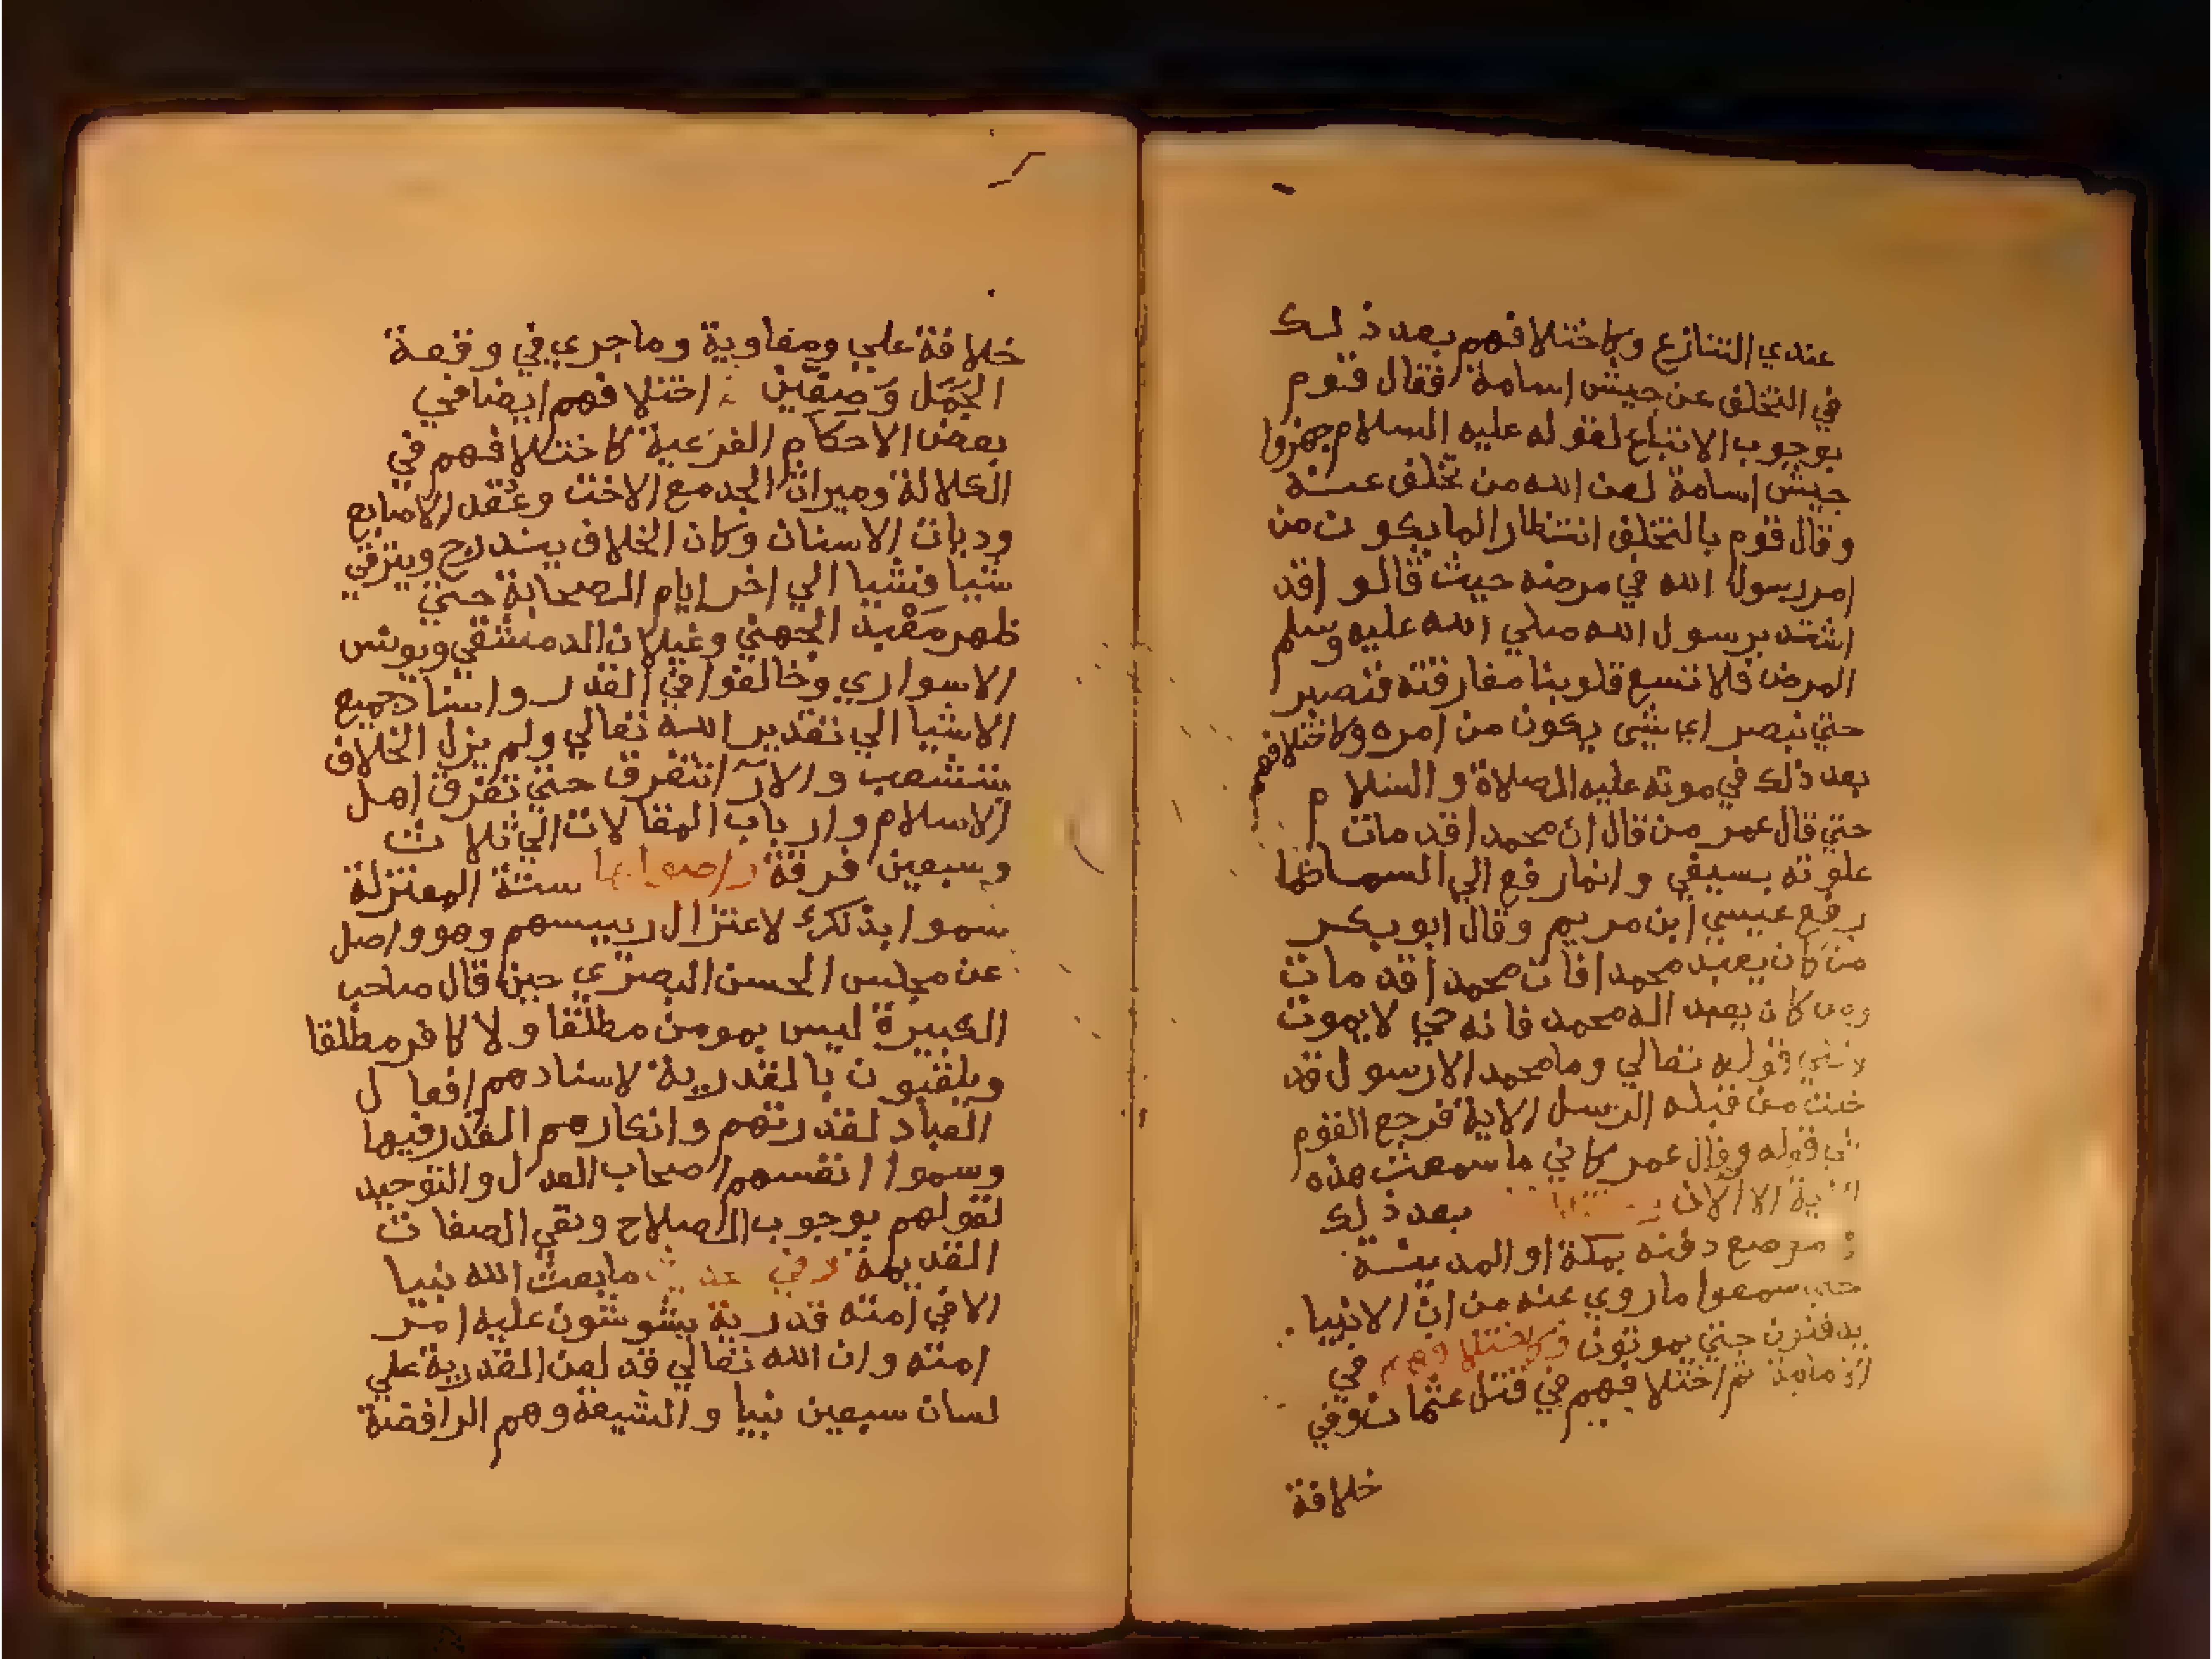 عندي التنازع وكاختلافهم بعد ذلك
في التخلف عن جيش اسامة فقال قوم
بوجوب الاتباع لقوله عليه السلام جهزوا
جيش اسامة لعن الله من تخلف عنه
وقال قوم بالتخلف انتظارا لما يكون من
امر رسول الله في مرضه حيث قالوا قد
اشتد برسول الله صلي الله عليه وسلم
المرض فلا تسع قلوبنا مفارقته فنصبر
حتي نبصر اي شي يكون من امره وكاختلافهم
بعد ذلك في موته عليه الصلاة والسلام
حتي قال عمر من قال ان محمدا قد مات
علوته بسيفي وانما رفع الي السما كما
رفع عيسي ابن مريم وقال ابو بكر
من كان يعبد محمدا فان محمدا قد مات
ومن كان يعبد اله محمد فانه حي لا يموت
قوله تعالي وما محمد الا رسول قد
خلت من قبله الرسل الاية فرجع القوم
قوله وقال عمر كاني ما سمعت هذه
الاية الا الان بعد ذلك
موضع دفنه بمكة او المدينة
حتي سمعوا ما روي عنه من ان الانبيا
يدفنون حيث يموتون وكاختلافهم في
الامامة ثم اختلافهم في قتل عثمان وفي
خلافة
خلافة علي ومعاوية وما جري في وقعة
الجَمَل وَصِفّين اختلافهم ايضا في
بعض الاحكام الفرعية كاختلافهم في
الكلالة وميراث الجد مع الاخت وعقد الاصابع
وديات الاسنان وكان الخلاف يتدرج ويترقي
شيا فشيا الي اخر ايام الصحابة حتي
ظهر مَعْبد الجهني وغيلان الدمشقي ويونس
الاسواري وخالفوا في القدر واسناد جميع
الاشيا الي تقدير الله تعالي ولم يزل الخلاف
يتشعب والارآ تتفرق حتي تفرق اهل
الاسلام وارباب المقالات الي ثلاث
وسبعين فرقة واصولها ستة المعتزلة
سموا بذلك لاعتزال رييسهم وهو واصل
عن مجلس الحسن البصري حين قال صاحب
الكبيرة ليس بمومن مطلقا ولا كافر مطلقا
ويلقبون بالقدرية لاسنادهم افعال
العباد لقدرتهم وانكارهم القدر فيها
وسموا انفسهم اصحاب العدل والتوحيد
لقولهم بوجوب الصلاح ونفي الصفات
القديمة وفي حديث ما بعث الله نبيا
الا في امته قدرية يشوشون عليه امر
امته وان الله تعالي قد لعن القدرية علي
لسان سبعين نبيا والشيعة وهم الرافضة